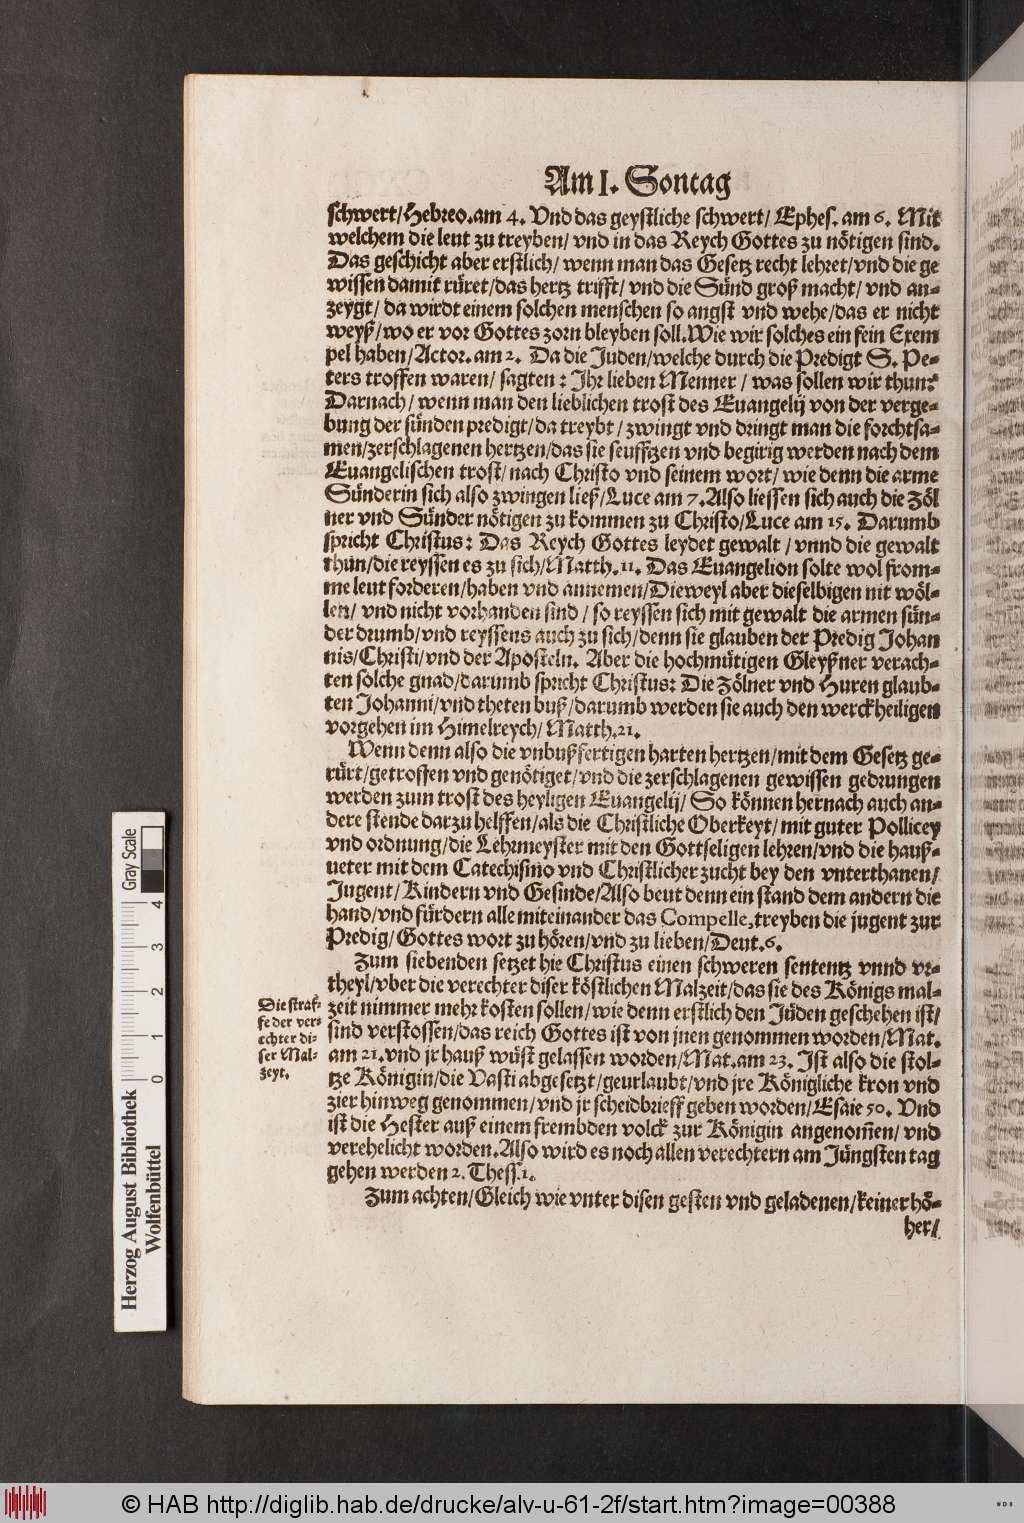 Am I. Sontag
schwert/Hebreo.am 4. Vnd das geystliche schwert/ Ephes. am 6. Mit
welchem die leut zu treyben/ vnd in das Reych Gottes zu nötigen sind.
Das geschicht aber erstlich/ wenn man das Gesetz recht lehret/vnd die ge
wissen damit rüret/das hertz trifft/ vnd die Sünd groß macht/ vnd an-
zeygt/ da wirdt einem solchen menschen so angst vnd wehe/das er nicht
weyß/wo er vor Gottes zorn bleyben soll.Wie wir solches ein fein Exem
pel haben/Actor. am 2. Da die Juden/welche durch die Predigt S. Pe-
ters troffen waren/ sagten: Jhr lieben Menner / was sollen wir thun?
Darnach/ wenn man den lieblichen trost des Euangelij von der verge-
bung der sünden predigt/da treybt/ zwingt vnd dringt man die forchtsa-
men/zerschlagenen hertzen/das sie seufftzen vnd begirig werden nach dem
Euangelischen trost/ nach Christo vnd seinem wort/ wie denn die arme
Sünderin sich also zwingen ließ/Luce am 7. Also liessen sich auch die Zöl
ner vnd Sünder nötigen zu kommen zu Christo/Luce am 15. Darumb
spricht Christus: Das Reych Gottes leydet gewalt / vnnd die gewalt
thun/die reyssen es zu sich/Matth.11. Das Euangelion solte wol from-
me leut forderen/haben vnd annemen/Dieweyl aber dieselbigen nit wöl-
len/ vnd nicht vorhanden sind/ so reyssen sich mit gewalt die armen sün-
der drumb/vnd reyssens auch zu sich/denn sie glauben der Predig Johan
nis/Christi/vnd der Aposteln. Aber die hochmütigen Gleyßner verach-
ten solche gnad/darumb spricht Christus: Die Zölner vnd Huren glaub-
ten Johanni/vnd theten buß/darumb werden sie auch den werckheiligen
vorgehen im Himelreych/ Matth.21.
Wenn denn also die vnbußfertigen harten hertzen/mit dem Gesetz ge-
rürt/getroffen vnd genötiget/vnd die zerschlagenen gewissen gedrungen
werden zum trost des heyligen Euangelij/ So können hernach auch an-
dere stende darzu helffen/als die Christliche Oberkeyt/mit guter Pollicey
vnd ordnung/die Lehrmeyster mit den Gottseligen lehren/vnd die hauß-
ueter mit dem Catechismo vnd Christlicher zucht bey den vnterthanen/
Jugent/ Kindern vnd Gesinde/Also beut denn ein stand dem andern die
hand/vnd fürdern alle miteinander das Compelle, treyben die jugent zur
Predig/Gottes wort zu hören/vnd zu lieben/Deut.6.
Zum siebenden setzet hie Christus einen schweren sententz vnnd vr-
theyl/vber die verechter diser köstlichen Malzeit/das sie des Königs mal-
zeit nimmer mehr kosten sollen/wie denn erstlich den Jüden geschehen ist/
sind verstossen/das reich Gottes ist von jnen genommen worden/Mat.
am 21.vnd jr hauß wüst gelassen worden/Mat.am 23. Jst also die stol-
tze Königin/die Vasti abgesetzt/geurlaubt/vnd jre Königliche kron vnd
zier hinweg genommen/vnd jr scheidbrieff geben worden/Esaie 50. Vnd
ist die Hester auß einem frembden volck zur Königin angenom̃en/ vnd
verehelicht worden.Also wird es noch allen verechtern am Jüngsten tag
gehen werden 2. Thess.1.
Zum achten/Gleich wie vnter disen gesten vnd geladenen/keiner hö-
her/
Die straf-
fe der ver-
echter di-
ser Mal-
zeyt.
Herzog August Bibliothek
Wolfenbüttel
0 1 2 3 4
Gray Scale
© HAB http://diglib.hab.de/drucke/alv-u-61-2f/start.htm?image=00388